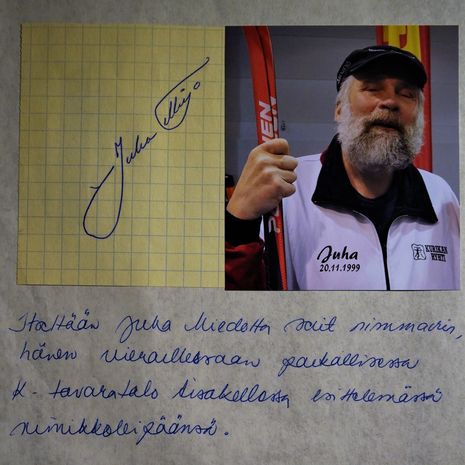 Juha Mieto
NEN
Juha
20.11.1999
KURIKAN
RYHTI
Itseltään Juha Miedolta sait nimmarin,
hänen vieraillessaan paikallisessa
K-tavaratalo Sisäkellossa esittelemässä
nimikkoleipäänsä.